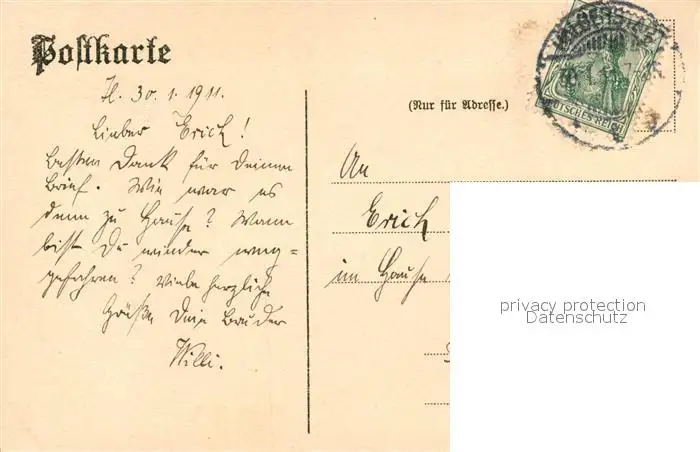 Postkarte
H. 30.1.1911.
Lieber Erich!
Besten Dank für Deinen
Brief. Wie war es
denn zu Hause? Wann
bist Du wieder weg=
gefahren? Viele herzliche
Grüße Dein Bruder
Willi.
(Nur für Adresse.)
An
Erich
im Hause
DEUTSCHES REICH
privacy protection
Datenschutz